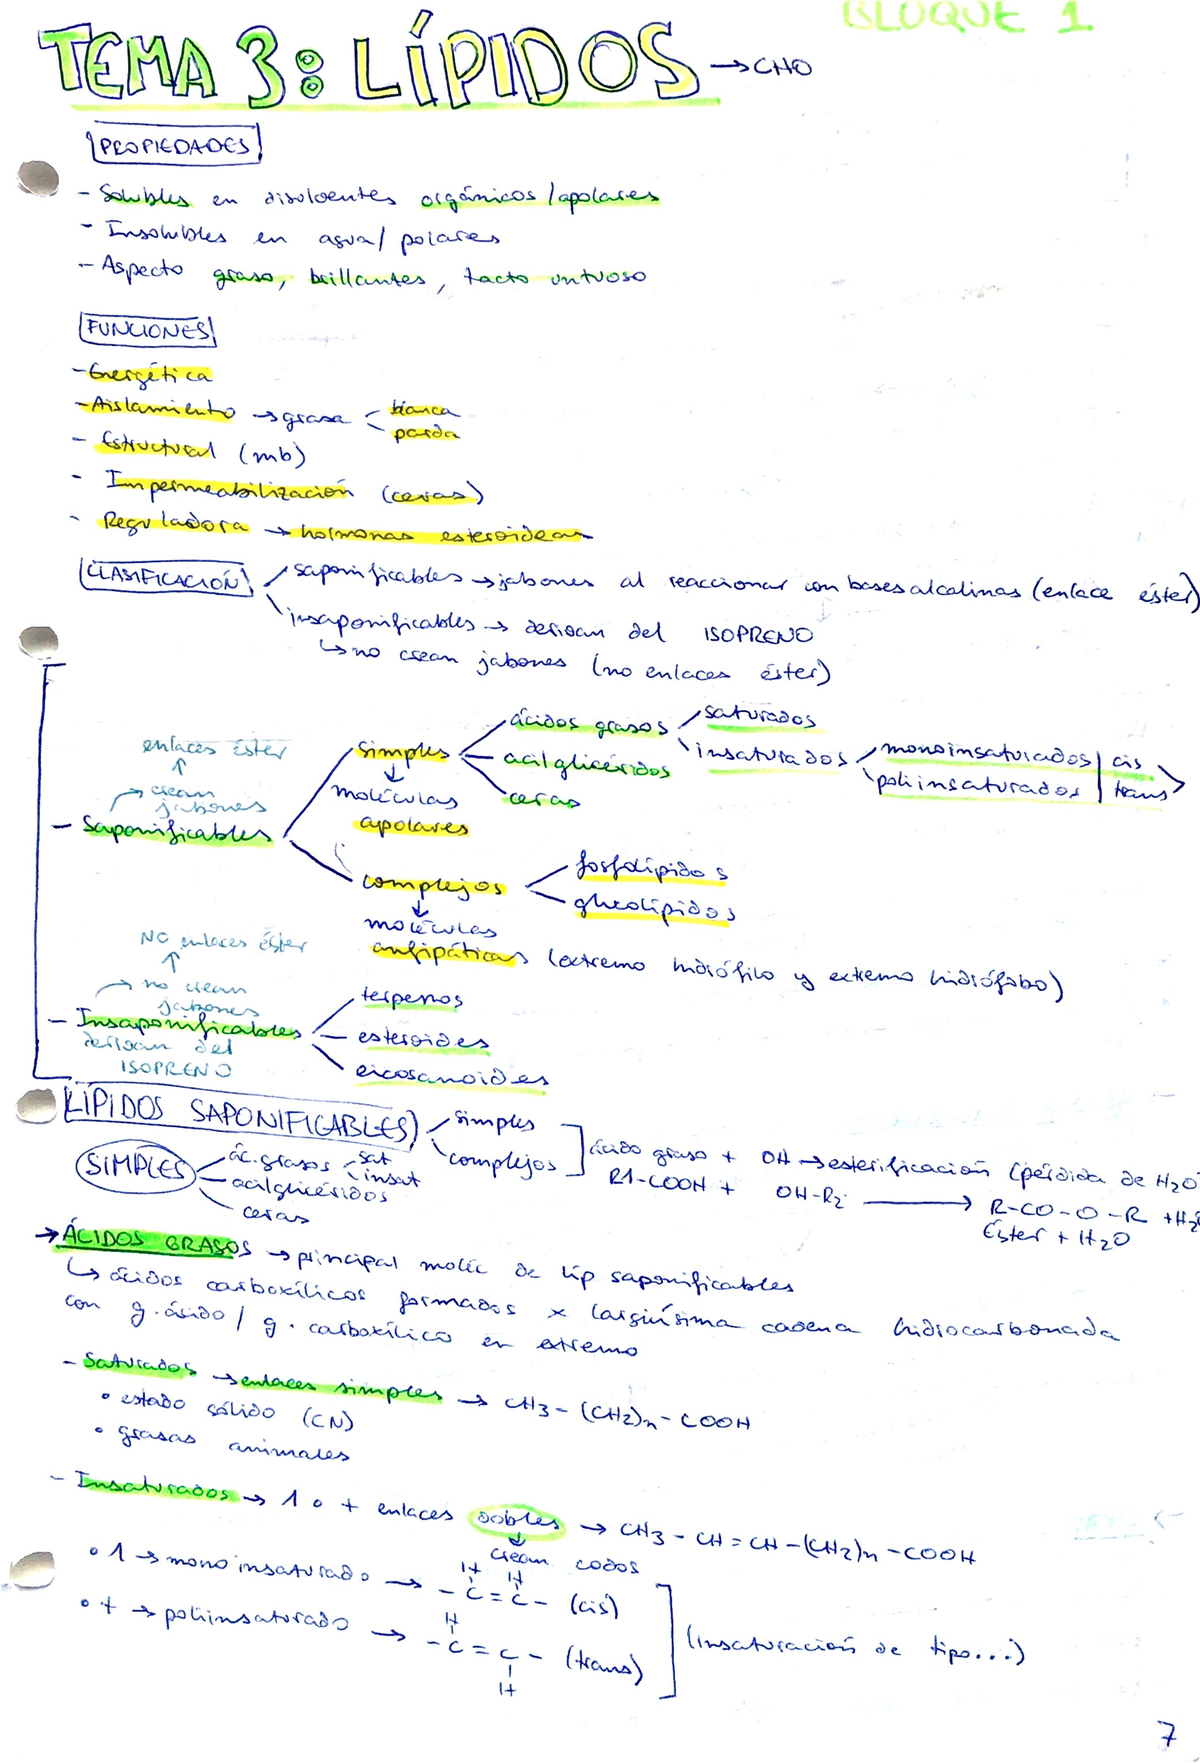 BLOQUE 1
TEMA 3: LÍPIDOS → CHO
PROPIEDADES
- Solubles en disolventes orgánicos/apolares
- Insolubles en agua/polares
- Aspecto graso, brillantes, tacto untuoso
FUNCIONES
- Energética
- Aislamiento → grasa < blanca
parda
- Estructural (mb)
- Impermeabilización (ceras)
- Reguladora → hormonas esteroideas
CLASIFICACIÓN
saponificables → jabones al reaccionar con bases alcalinas (enlace éster)
insaponificables → derivan del ISOPRENO
↳ no crean jabones (no enlaces éster)
enlaces éster
↑
→ crean
jabones
- Saponificables
simples
↓
moléculas
apolares
ácidos grasos
saturados
insaturados
monoinsaturados | cis
poliinsaturados | trans
acilglicéridos
ceras
complejos
↓
moléculas
anfipáticas (extremo hidrófilo y extremo hidrófobo)
fosfolípidos
glucolípidos
NO enlaces éster
↑
→ no crean
jabones
- Insaponificables
derivan del
ISOPRENO
terpenos
esteroides
eicosanoides
LÍPIDOS SAPONIFICABLES
simples
complejos
ácido graso + OH → esterificación (pérdida de H2O
R1-COOH + OH-R2 → R-CO-O-R + H2
Éster + H2O
SIMPLES
ác. grasos
sat
insat
acilglicéridos
ceras
→ ÁCIDOS GRASOS → principal moléc de líp saponificables
↳ ácidos carboxílicos formados x larguísima cadena hidrocarbonada
con g. ácido / g. carboxílico en extremo
- Saturados → enlaces simples → CH3-(CH2)n-COOH
• estado sólido (CN)
• grasas animales
- Insaturados → 1 o + enlaces dobles → CH3-CH=CH-(CH2)n-COOH
↓
crean codos
• 1 → monoinsaturado →
H H
-C=C- (cis)
• + → poliinsaturado →
H
-C=C- (trans)
H
(insaturación de tipo...)
7